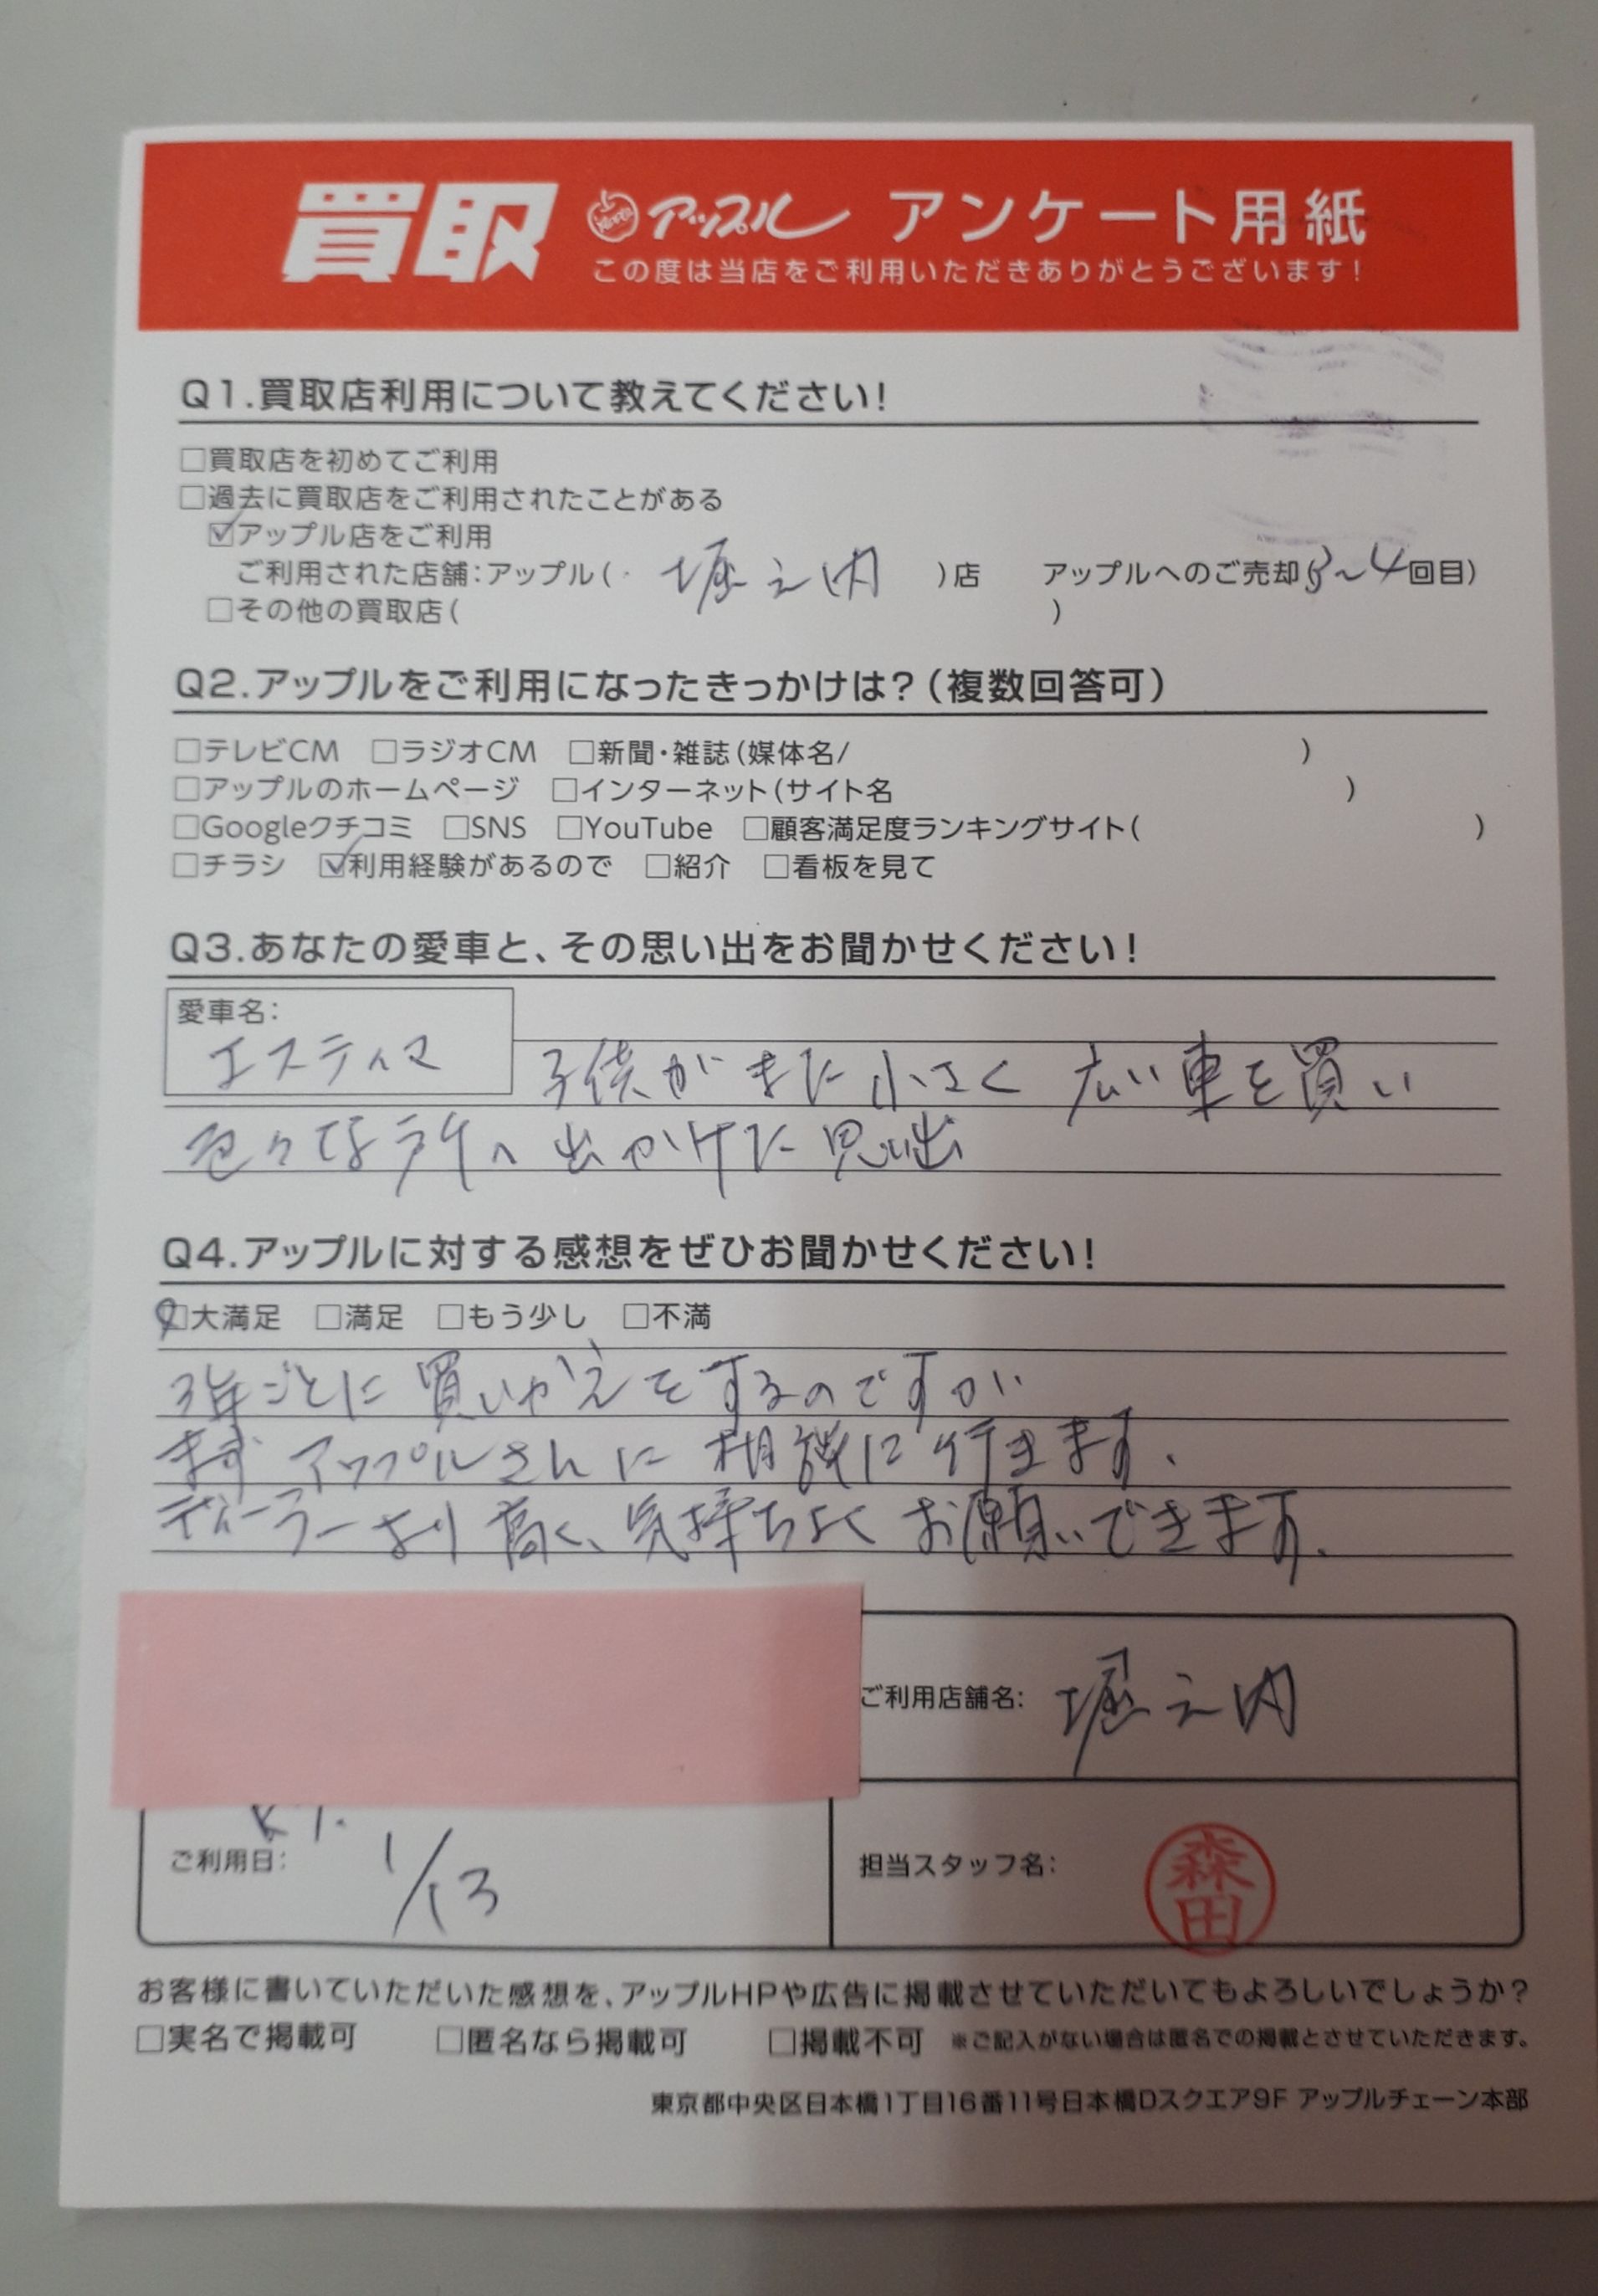 買取 アップル アンケート用紙
この度は当店をご利用いただきありがとうございます!
Q1.買取店利用について教えてください!
□買取店を初めてご利用
□過去に買取店をご利用されたことがある
☑アップル店をご利用
ご利用された店舗:アップル( 堀之内 )店 アップルへのご売却(3~4回目)
□その他の買取店( )
Q2.アップルをご利用になったきっかけは?(複数回答可)
□テレビCM □ラジオCM □新聞・雑誌(媒体名/ )
□アップルのホームページ □インターネット(サイト名 )
□Googleクチコミ □SNS □YouTube □顧客満足度ランキングサイト( )
□チラシ ☑利用経験があるので □紹介 □看板を見て
Q3.あなたの愛車と、その思い出をお聞かせください!
愛車名:
エスティマ 子供がまだ小さく 広い車を買い
色々な所へ出かけた思い出
Q4.アップルに対する感想をぜひお聞かせください!
☑大満足 □満足 □もう少し □不満
3年ごとに買いかえをするのですが
まず アップルさんに相談に行きます.
ディーラーより高く、気持ちよくお願いできます.
ご利用店舗名: 堀之内
R7.
ご利用日: 1/13
担当スタッフ名: 森田
お客様に書いていただいた感想を、アップルHPや広告に掲載させていただいてもよろしいでしょうか?
□実名で掲載可 □匿名なら掲載可 □掲載不可 ※ご記入がない場合は匿名での掲載とさせていただきます。
東京都中央区日本橋1丁目16番11号日本橋Dスクエア9F アップルチェーン本部